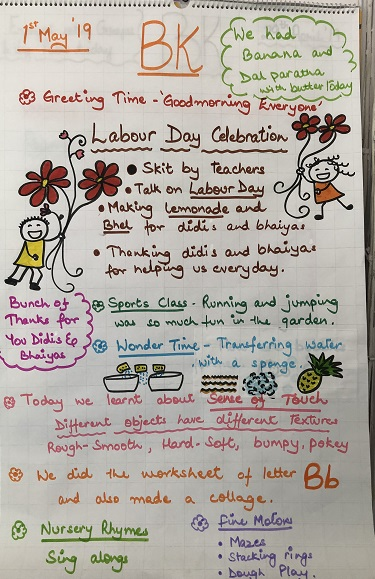 1st May '19
BK
We had
Banana and
Dal paratha
with butter Today
Greeting Time - 'Goodmorning Everyone'
Labour Day Celebration
• Skit by Teachers
• Talk on Labour Day
• Making lemonade and
Bhel for didis and bhaiyas
• Thanking didis and bhaiyas
for helping us everyday.
Bunch of
Thanks for
You Didis &
Bhaiyas
Sports Class - Running and jumping
was so much fun in the garden.
Wonder Time - Transferring water
with a sponge.
Today we learnt about Sense of Touch
Different objects have different Textures
Rough-Smooth, Hard-Soft, bumpy, pokey
We did the worksheet of letter Bb
and also made a collage.
Nursery Rhymes
Sing alongs
Fine Motors
• Mazes
• Stacking rings
• Dough Play.